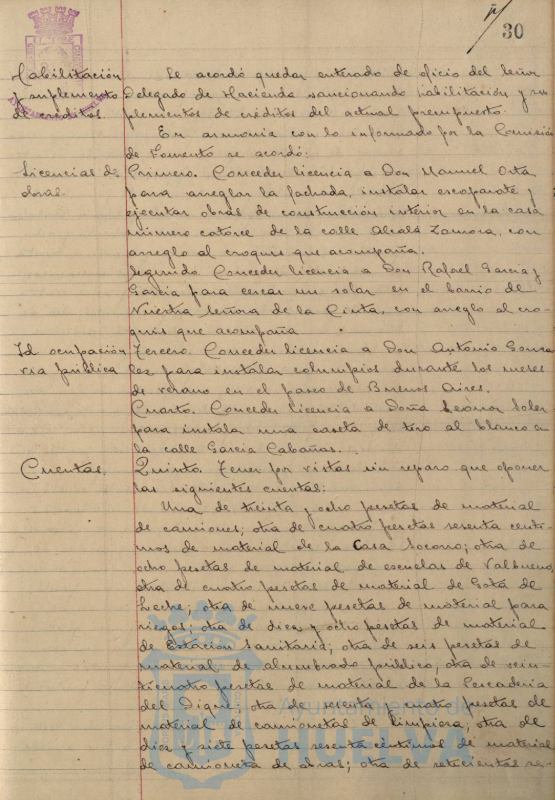 30
Habilitación
y suplemento
de créditos.
Se acordó quedar enterado de oficio del Señor
Delegado de Hacienda sancionando habilitación y su
plementos de créditos del actual presupuesto.
En armonía con lo informado por la Comisión
de Fomento se acordó:
Licencias de
obras.
Primero. Conceder licencia a Don Manuel Orta
para arreglar la fachada, instalar escaparate y
ejecutar obras de construcción interior en la casa
número catorce de la calle Alcalá Zamora, con
arreglo al croquis que acompaña.
Segundo. Conceder licencia a Don Rafael Garcia y
Garcia para cercar un solar en el barrio de
Nuestra Señora de la Cinta, con arreglo al cro-
quis que acompaña.
Id ocupación
via pública
Tercero. Conceder licencia a Don Antonio Gonza
lez para instalar columpios durante los meses
de verano en el paseo de Buenos Aires.
Cuarto. Conceder licencia a Doña Leonor Soler
para instala una caseta de tiro al blanco a
la calle Garcia Cabañas.
Cuentas.
Quinto. Tener por vistas sin reparo que oponer
las siguientes cuentas:
Una de treinta y ocho pesetas de material
de camiones; otra de cuatro pesetas sesenta centi-
mos de material de la Casa Socorro; otra de
ocho pesetas de material de escuelas de Valbueno,
otra de cuatro pesetas de material de Gota de
Leche; otra de nueve pesetas de material para
riegos; otra de diez y ocho pesetas de material
de Estación Sanitaria; otra de seis pesetas de
material de alumbrado público; otra de vein-
ticuatro pesetas de material de la Pescaderia
del Dique; otra de sesenta y cuatro pesetas de
material de camionetas de limpieza; otra de
diez y siete pesetas sesenta céntimos de material
de camioneta de obras; otra de setecientas se-
Ayuntamiento de
HUELVA